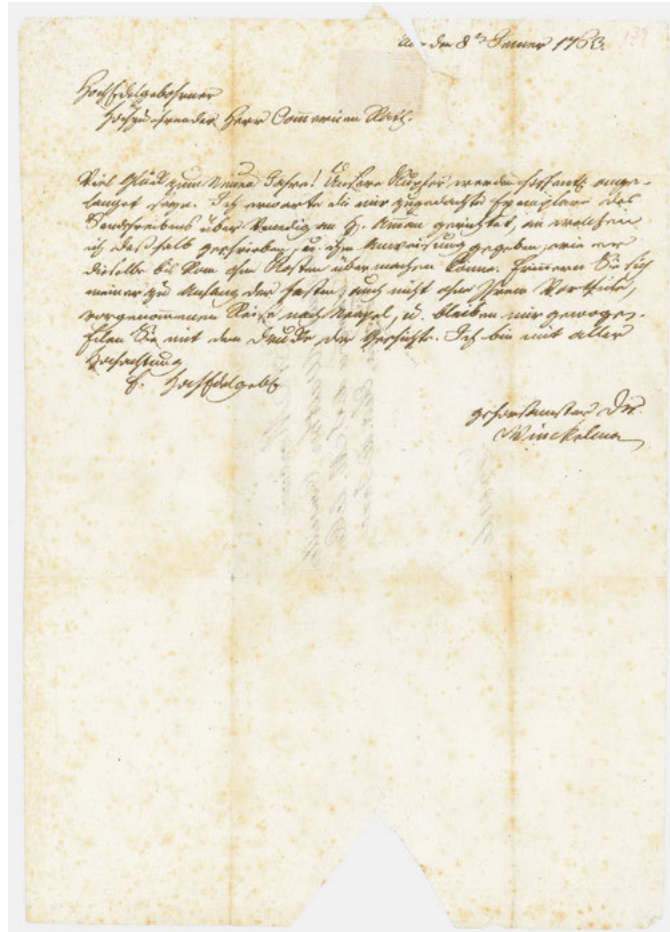 den 8ten Jenner 1763.
139
HochEdelgebohrner
Hochzuehrender Herr Commercien Rath.
Viel Glück zum Neuen Jahre! Unsere Kupfer werden hoffentl. ange-
langet seyn. Ich erwarte die mir zugedachte Exemplare des
Sendschreibens über Venedig an H. Amon gerichtet, an welchen
ich deshalb geschrieben, u. ihm Anweisung gegeben, wie er
dieselbe bis Rom ohne Kosten übermachen könne. Erinnern Sie sich
meiner zu Anfang der Fasten, auch nicht ohne Ihrem Vortheile,
vorgenommenen Reise nach Neapel, u. bleiben mir gewogen.
Eilen Sie mit dem Drucke der Geschichte. Ich bin mit aller
Hochachtung
E. HochEdelgeb.
gehorsamster Din.
Winckelman